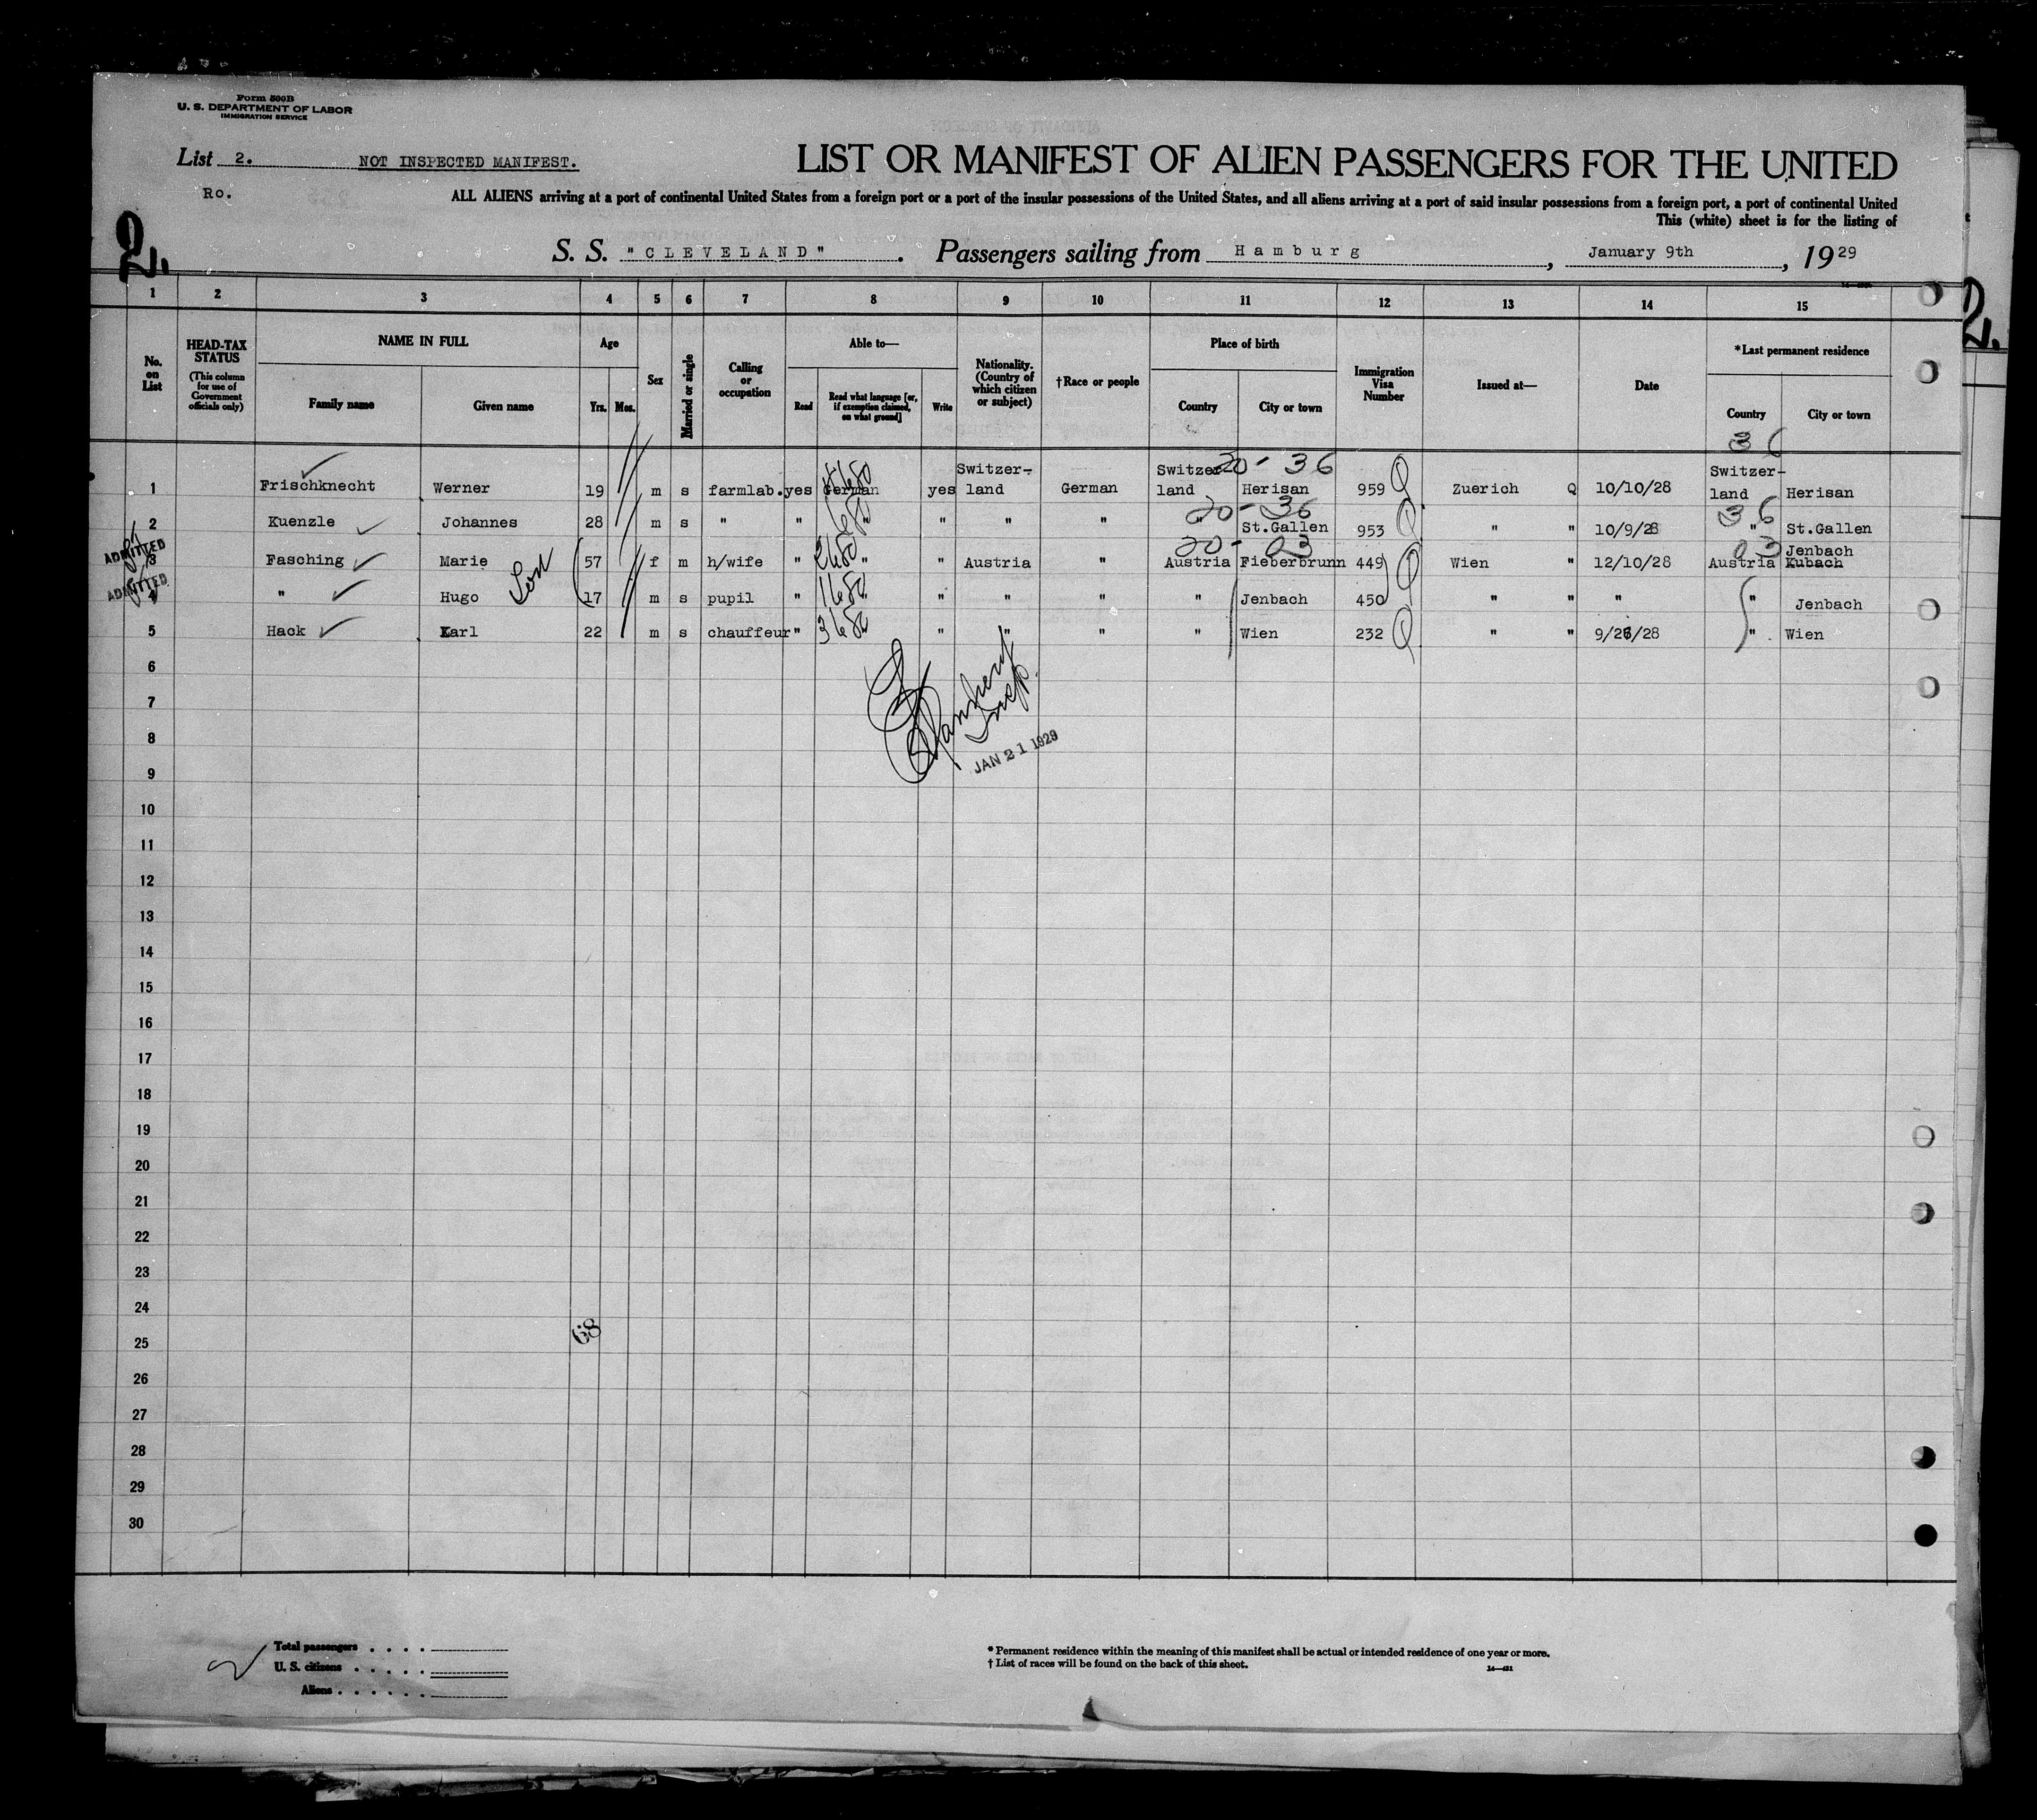 Form 500B
U. S. DEPARTMENT OF LABOR
IMMIGRATION SERVICE
List 2. NOT INSPECTED MANIFEST.
LIST OR MANIFEST OF ALIEN PASSENGERS FOR THE UNITED
Ro.
ALL ALIENS arriving at a port of continental United States from a foreign port or a port of the insular possessions of the United States, and all aliens arriving at a port of said insular possessions from a foreign port, a port of continental United
This (white) sheet is for the listing of
2.
S. S. "CLEVELAND". Passengers sailing from Hamburg, January 9th, 1929
1 2 3 4 5 6 7 8 9 10 11 12 13 14 15
No. on List
HEAD-TAX STATUS (This column for use of Government officials only)
NAME IN FULL Family name Given name
Age Yrs. Mos.
Sex
Married or single
Calling or occupation
Able to— Read Read what language [or, if exemption claimed, on what ground] Write
Nationality. (Country of which citizen or subject)
†Race or people
Place of birth Country City or town
Immigration Visa Number
Issued at—
Date
*Last permanent residence Country City or town
36
20-36
1 Frischknecht Werner 19 m s farmlab. yes German yes Switzer-land German Switzer-land Herisan 959 Q Zuerich Q 10/10/28 Switzer-land Herisan
20-36 36
2 Kuenzle Johannes 28 m s " " " " " " " St.Gallen 953 Q " " 10/9/28 " St.Gallen
20-03 03
ADMITTED 3 Fasching Marie 57 f m h/wife " " " Austria " Austria Fieberbrunn 449 Q Wien " 12/10/28 Austria Jenbach Kubach
ADMITTED 4 " Hugo Son 17 m s pupil " " " " " " Jenbach 450 " " " " Jenbach
5 Hack Karl 22 m s chauffeur " " " " " " Wien 232 Q " " 9/26/28 " Wien
6
Insp.
7
JAN 21 1929
8
9
10
11
12
13
14
15
16
17
18
19
20
21
22
23
24
68
25
26
27
28
29
30
Total passengers
U. S. citizens
Aliens
* Permanent residence within the meaning of this manifest shall be actual or intended residence of one year or more.
† List of races will be found on the back of this sheet.